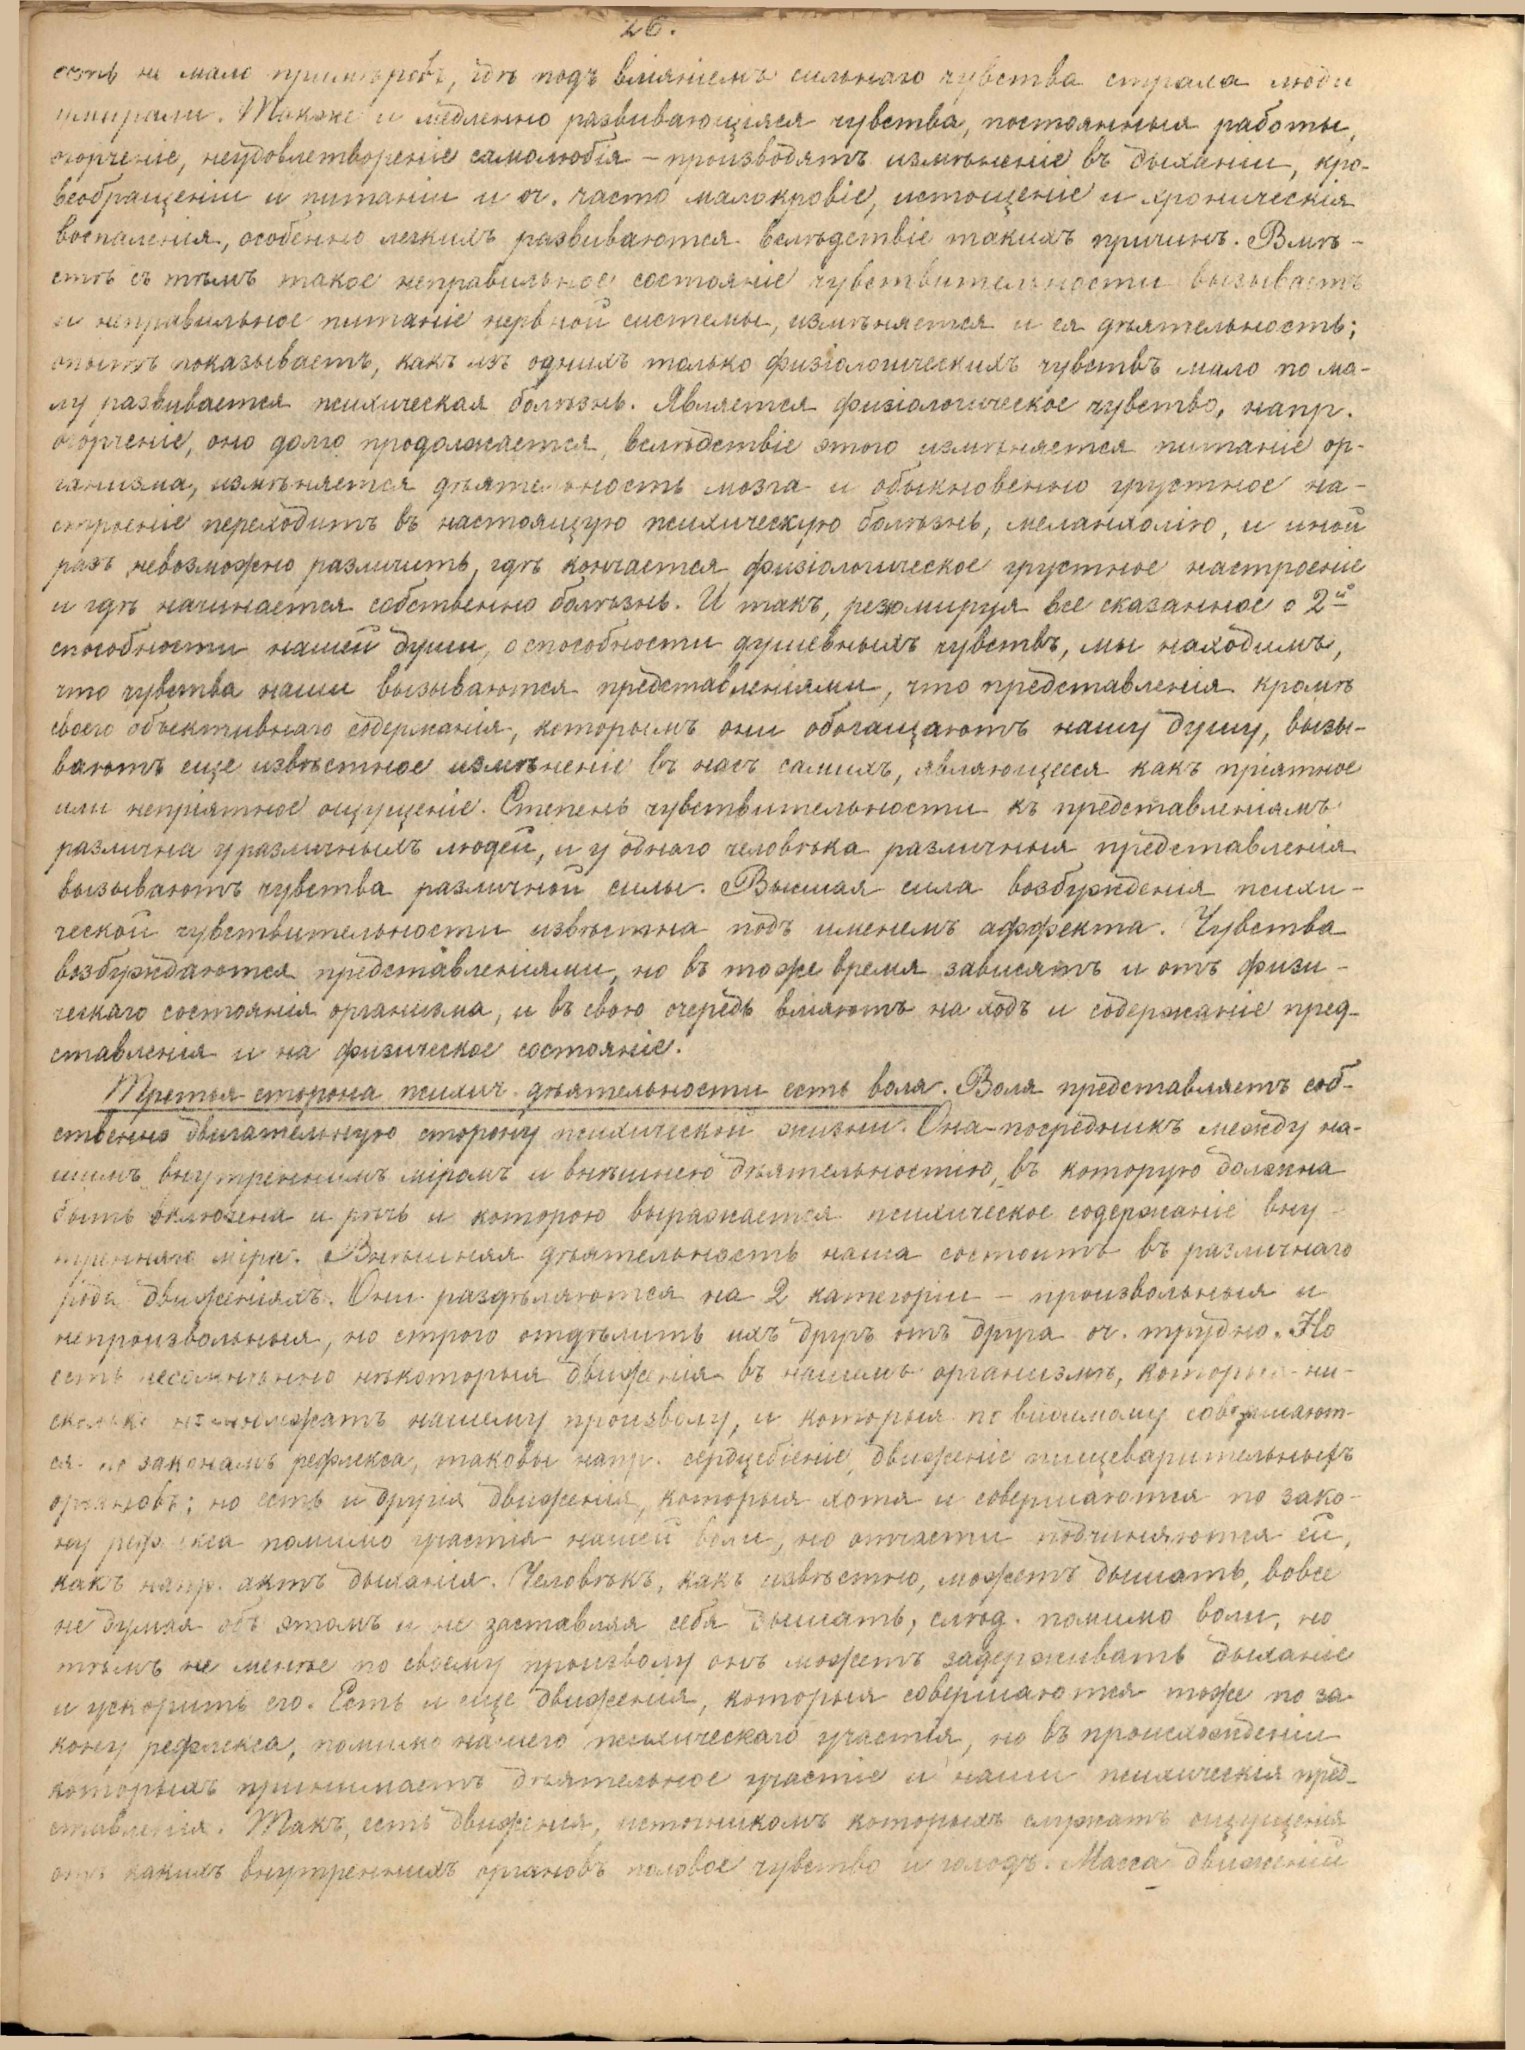 26.
есть не мало примѣровъ, гдѣ подъ вліяніемъ сильнаго чувства страха люди
умирали. Также и медленно развивающіяся чувства, постоянныя работы,
огорченіе, неудовлетвореніе самолюбія – производятъ измѣненіе въ дыханіи, кро-
веобращеніи и питаніи и оч. часто малокровіе, истощеніе и хроническія
воспаленія, особенно легкихъ развиваются вслѣдствіе такихъ причинъ. Вмѣ-
стѣ съ тѣмъ такое неправильное состояніе чувствительности вызываетъ
и неправильное питаніе нервной системы, измѣняется и ея дѣятельность;
опытъ показываетъ, какъ изъ однихъ только физіологическихъ чувствъ мало по ма-
лу развивается психическая болѣзнь. Является физіологическое чувство, напр.
огорченіе, оно долго продолжается, вслѣдствіе этого измѣняется питаніе ор-
ганизма, измѣняется дѣятельность мозга и обыкновенно грустное на-
строеніе переходитъ въ настоящую психическую болѣзнь, меланхолію, и иной
разъ невозможно различить, гдѣ кончается физіологическое грустное настроеніе
и гдѣ начинается собственно болѣзнь. И такъ, резюмируя все сказанное о 2й
способности нашей души, о способности душевныхъ чувствъ, мы находимъ,
что чувства наши вызываются представленіями, что представленія кромѣ
своего объективнаго содержанія, которымъ они обогащаютъ нашу душу, вызы-
ваютъ еще извѣстное измѣненіе въ насъ самихъ, являющееся какъ пріятное
или непріятное ощущеніе. Степень чувствительности къ представленіямъ
различна у различныхъ людей, и у одного человѣка различныя представленія
вызываютъ чувства различной силы. Высшая сила возбужденія психи-
ческой чувствительности извѣстна подъ именемъ аффекта. Чувства
возбуждаются представленіями, но въ тоже время зависятъ и отъ физи-
ческаго состоянія организма, и въ свою очередь вліяютъ на ходъ и содержаніе пред-
ставленія и на физическое состояніе.
Третья сторона психич. дѣятельности есть воля. Воля представляетъ соб-
ственно двигательную сторону психической жизни. Она – посредникъ между на-
шимъ внутреннимъ міромъ и внѣшнею дѣятельностію, въ которую должна
быть включена и рѣчь и которою выражается психическое содержаніе вну-
тренняго міра. Внѣшняя дѣятельность наша состоитъ въ различнаго
рода движеніяхъ. Они раздѣляются на 2 категоріи – произвольныя и
непроизвольныя, но строго отдѣлить ихъ другъ отъ друга оч. трудно. Но
есть несомнѣнно нѣкоторыя движенія въ нашемъ организмѣ, которыя ни-
сколько не подлежатъ нашему произволу, и которыя по видимому совершают-
ся по законамъ рефлекса, таковы напр. сердцебіеніе, движеніе пищеварительныхъ
органовъ; но есть и другія движенія, которыя хотя и совершаются по зако-
ну рефлекса помимо участія нашей воли, но отчасти подчиняются ей,
какъ напр. актъ дыханія. Человѣкъ, какъ извѣстно, можетъ дышать, вовсе
не думая объ этомъ и не заставляя себя дышать, слѣд. помимо воли, но
тѣмъ не менѣе по своему произволу онъ можетъ задерживать дыханіе
и ускорить его. Есть и еще движенія, которыя совершаются тоже по за-
кону рефлекса, помимо нашего психическаго участія, но въ происхожденіи
которыхъ принимаетъ дѣятельное участіе и наши психическія пред-
ставленія. Такъ, есть движенія, источникомъ которыхъ служатъ ощущенія
отъ какихъ внутреннихъ органовъ половое чувство и голодъ. Масса движеній